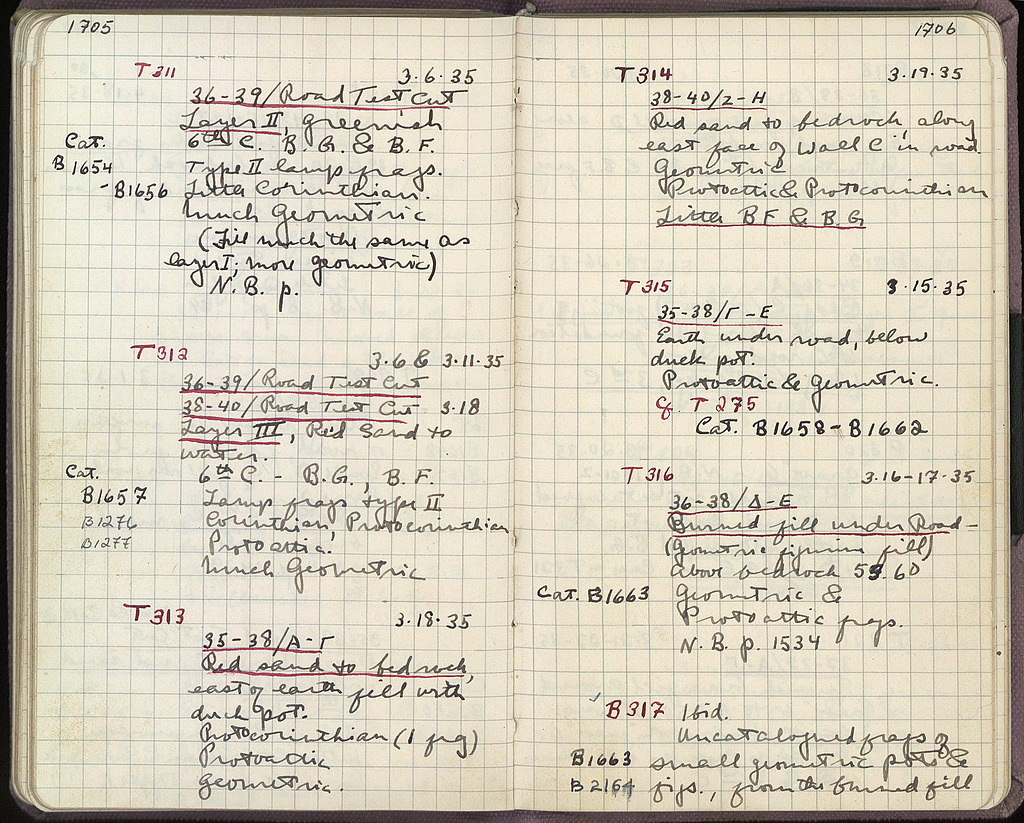 1705
T 311 3.6.35
36-39/Road Test Cut
Layer II, greenish
Cat. 6th C. B.G. & B.F.
B 1654 Type II lamp frags.
-B1656 Little Corinthian.
Much Geometric
(Fill much the same as
layer I; more geometric)
N.B. p.
T 312 3.6 & 3.11.35
36-39/Road Test Cut
38-40/Road Test Cut 3.18
Layer III, Red Sand to
water.
Cat. 6th C. - B.G., B.F.
B1657 Lamp frags type II
B1276 Corinthian, Protocorinthian
B1277 Protoattic.
Much Geometric
T 313 3.18.35
35-38/A-Γ
Red sand to bedrock,
east of earth fill with
duck pot.
Protocorinthian (1 frg)
Protoattic
Geometric.
1706
T 314 3.19.35
38-40/Z-H
Red sand to bedrock, along
east face of Wall C in road.
Geometric
Protoattic & Protocorinthian
Little BF & B.G
T 315 3.15.35
35-38/Γ-E
Earth under road, below
duck pot.
Protoattic & Geometric.
Cf. T 275
Cat. B1658-B1662
T 316 3.16-17-35
36-38/Δ-E
Burned fill under Road-
(Geometric figurine fill)
above bedrock 53.60
Cat. B1663 Geometric &
Protoattic frags.
N.B. p. 1534
B 317 Ibid.
Uncatalogued frags of
B1663 small geometric pots &
B 2164 figs., from the burned fill